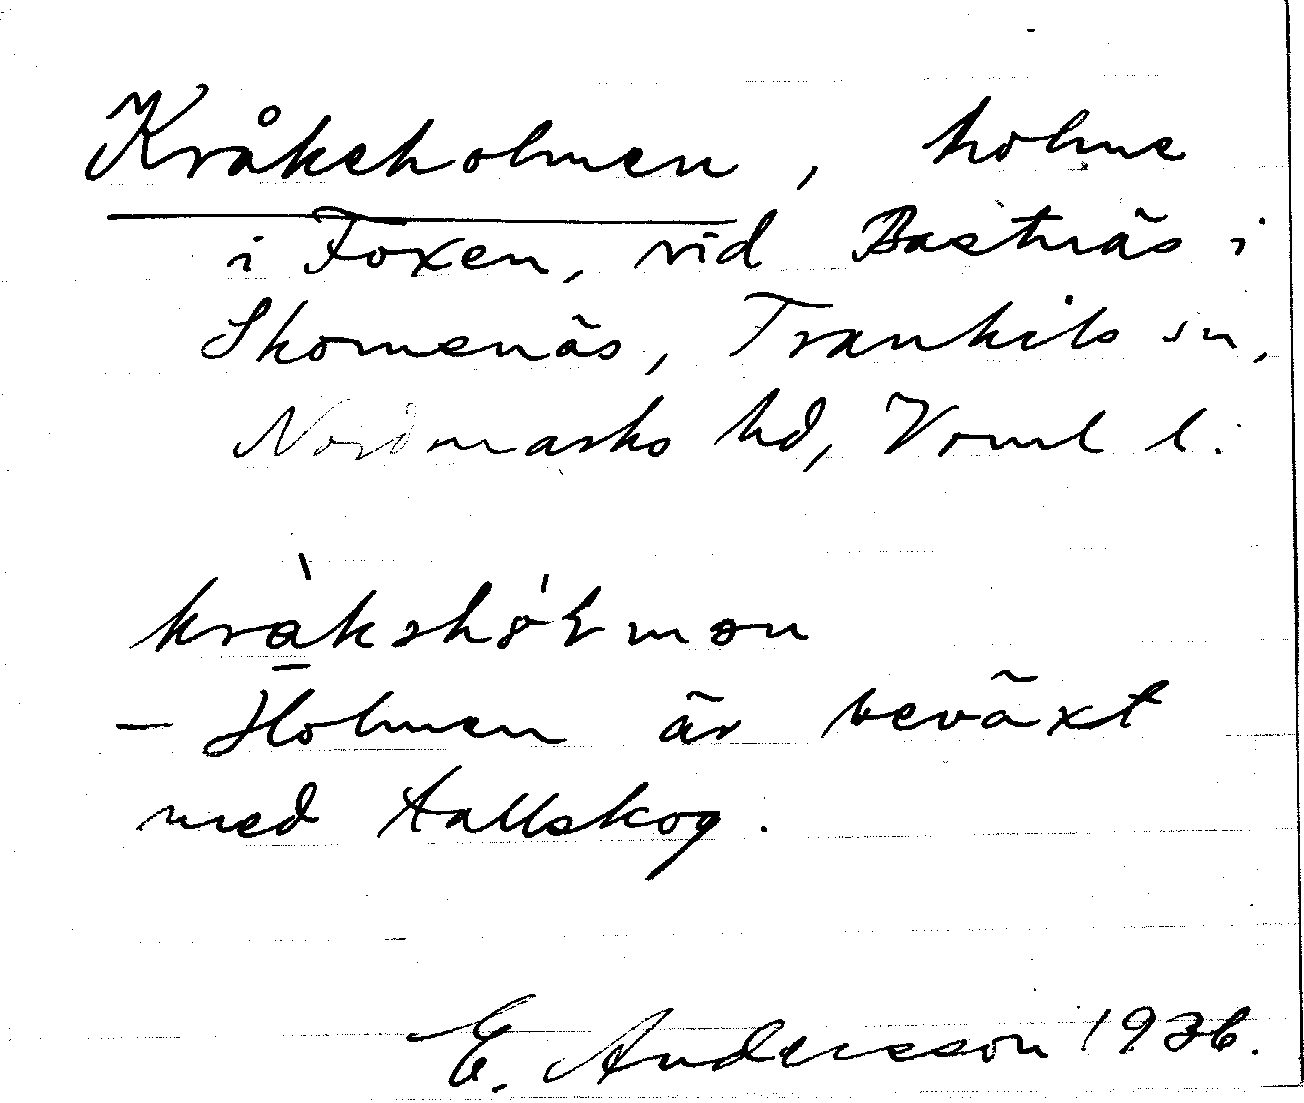 Kråkeholmen, holme
i Foxen, vid Bastnäs i
Skomenäs, Trankils sn,
Nordmarks hd, Vrml l.
– Holmen är beväxt
med tallskog.
E. Andersson 1936.